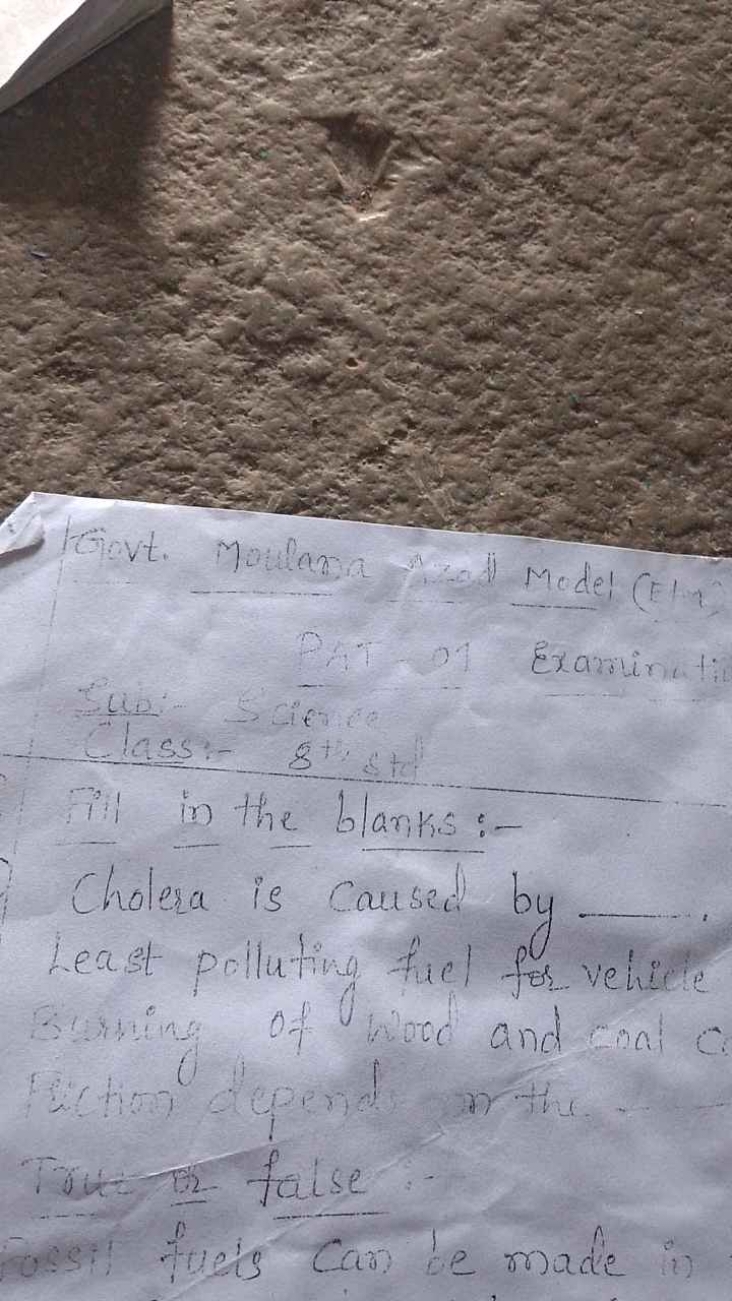 Govt. Moulana Azad Model (E/M)
PAT - 01 Examinatio
Sub:- Science
Class:- 8th std
Fill in the blanks :-
Cholera is caused by ———.
Least polluting fuel for vehicle
Burning of wood and coal c
Friction depends on the — —
True or false :-
Fossil fuels can be made in